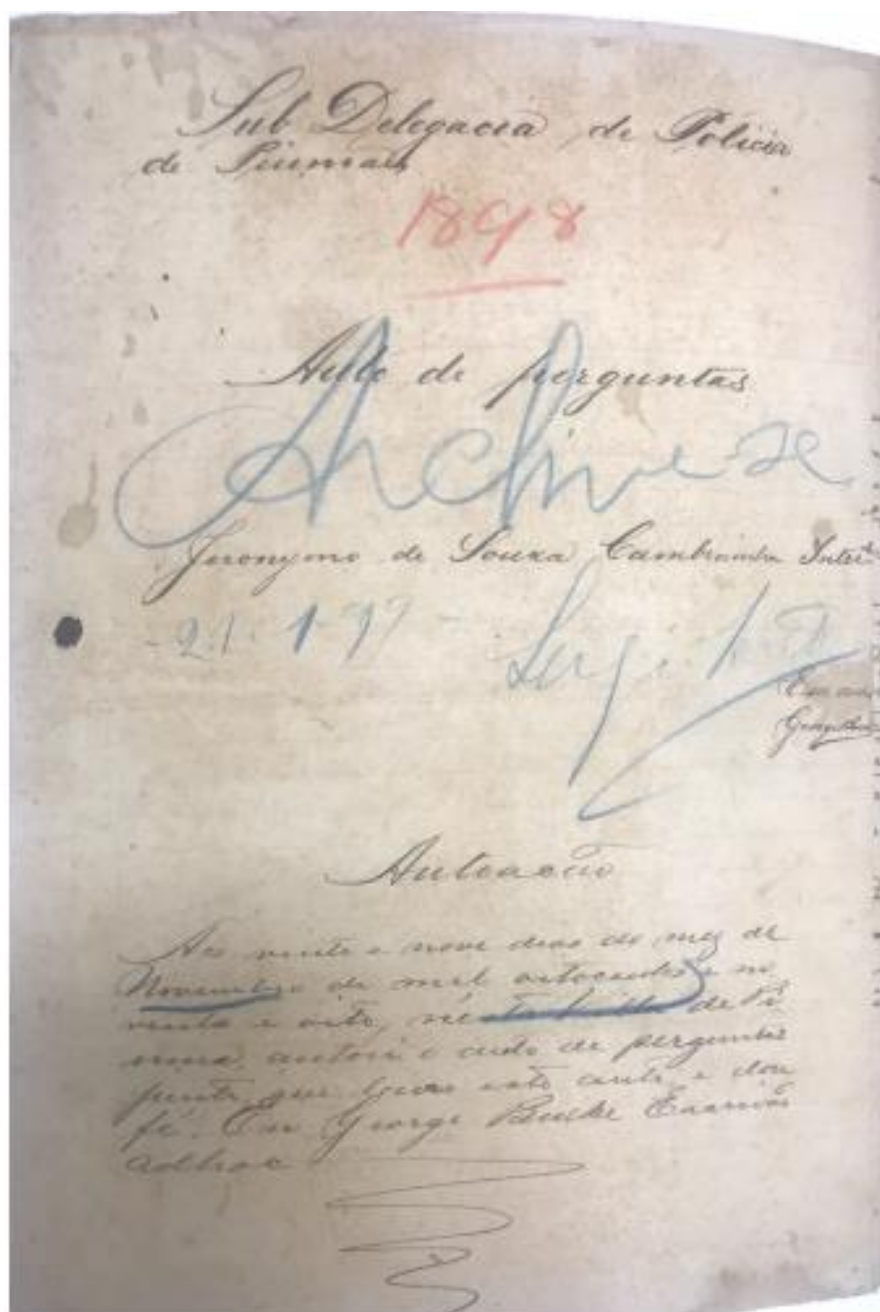 Sub Delegacia de Policia
de Piuma
1898
Auto de perguntas
Archive-se
Jeronymo de Souza
21-1-99
Autoação
Aos vinte e nove dias do mez de
Novembro de mil oitocentos e no
venta e oito, nésta villa de Pi
uma, autoei o auto de perguntas
que este auto, e dou
fé. Eu George Escrivão
adhoc